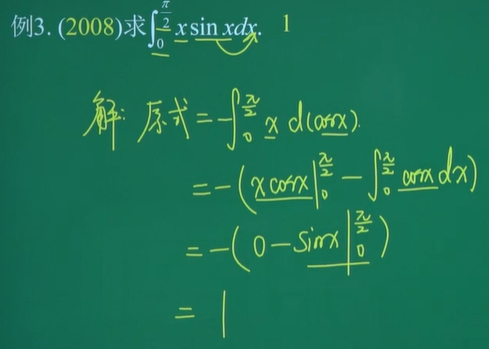 例3. (2008)求∫₀^{π/2} x sin xdx. 1
解: 原式=-∫₀^{π/2} x d(cosx).
=-(x cosx|₀^{π/2} - ∫₀^{π/2} cosx dx)
=-(0-sinx|₀^{π/2})
= 1